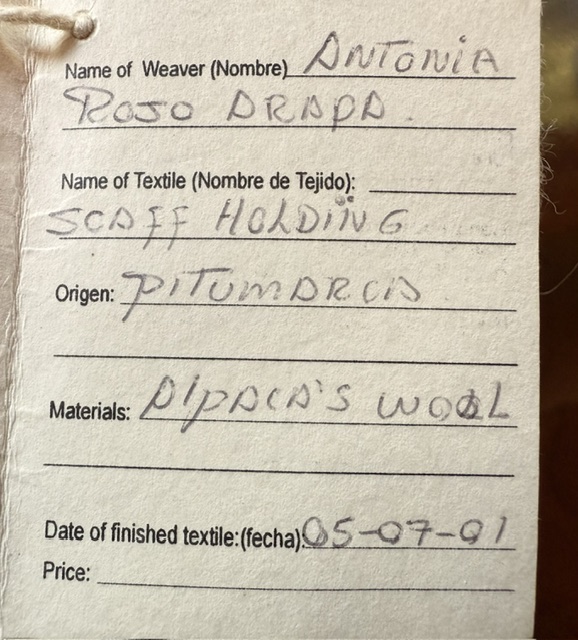 Name of Weaver (Nombre) ANTONIA
ROJO ARAPA.
Name of Textile (Nombre de Tejido):
SCAFF HOLDING
Origen: PITUMARCA
Materials: AlPACA'S WOOL
Date of finished textile:(fecha): 05-07-01
Price: